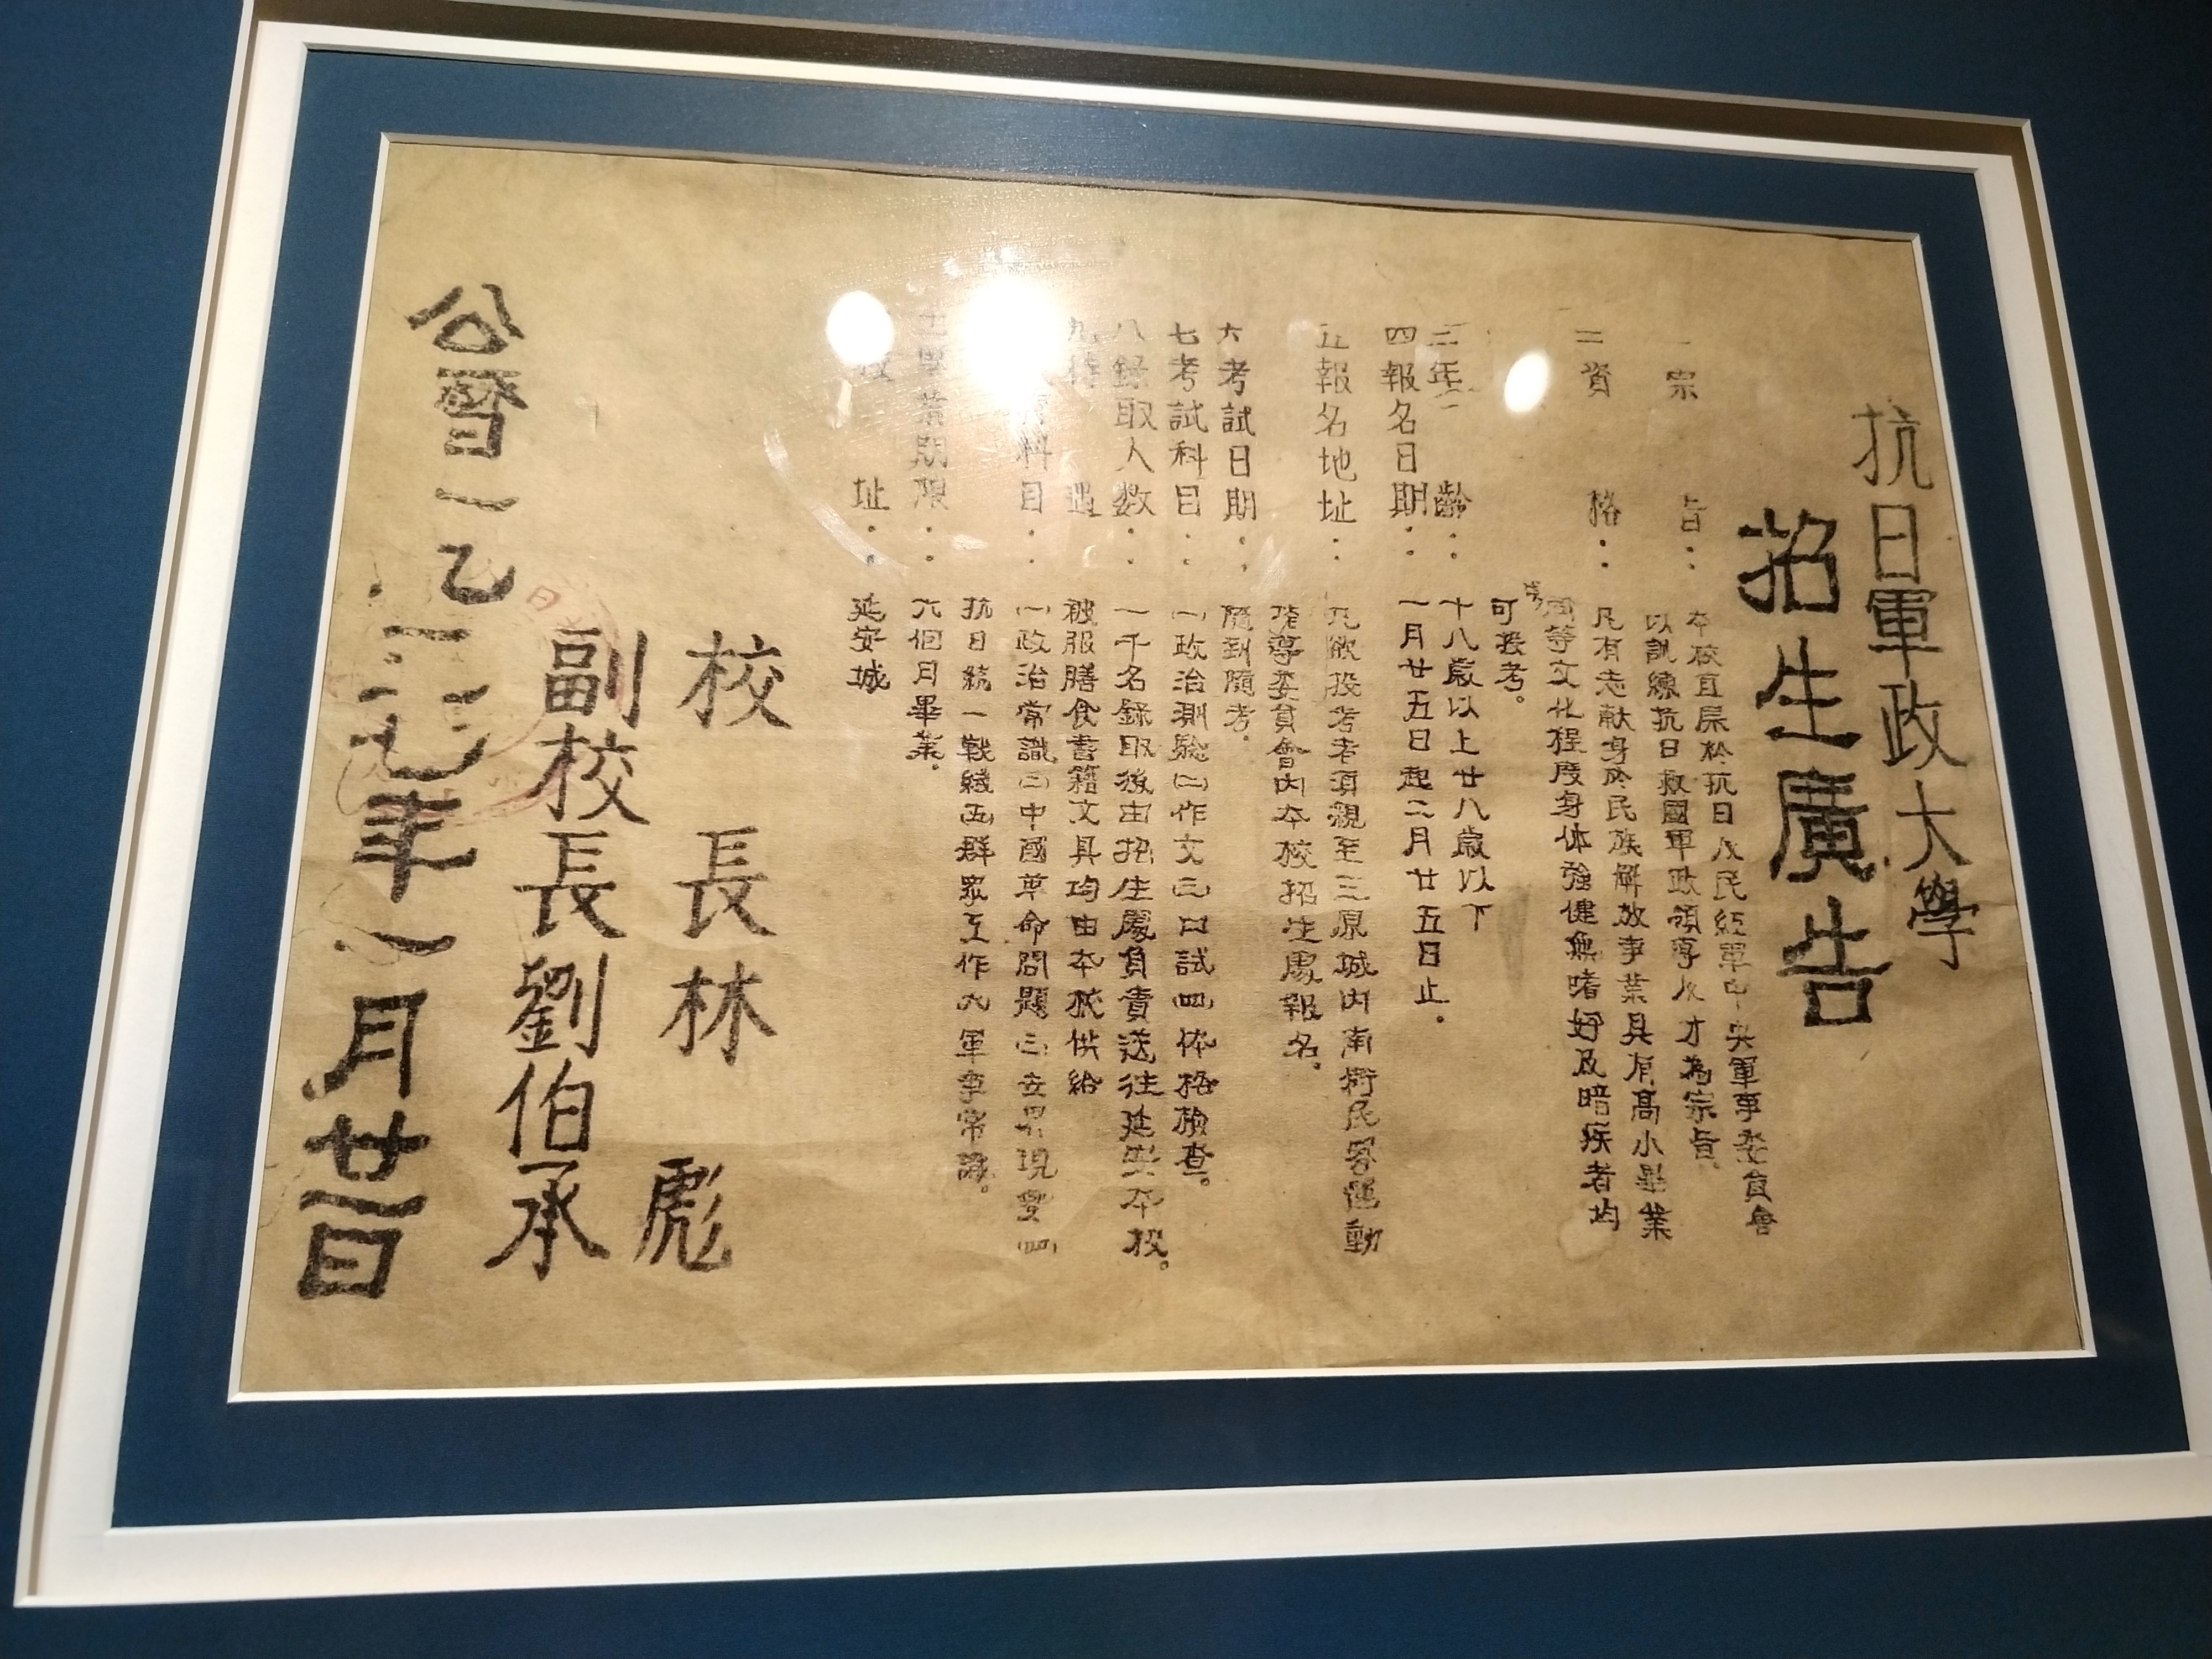 抗日軍政大學
招生廣告
一宗旨：本校直屬於抗日人民紅軍中央軍事委員會
以訓練抗日救國軍政領導人才為宗旨。
二資格：凡有志献身於民族解放事業具有高小畢業
同等文化程度身体強健無嗜好及暗疾者均
可投考。
三年齡：十八歲以上廿八歲以下
四報名日期：一月廿五日起二月廿五日止。
五報名地址：凡欲投考者須親至三原城内南街民眾運動
指導委員會内本校招生處報名。
六考試日期：隨到隨考。
七考試科目：㈠政治測驗㈡作文㈢口試㈣体格檢查。
八錄取人数：一千名錄取後由招生處負責送往延安本校。
九待遇：被服膳食書籍文具均由本校供給
科目：㈠政治常識㈡中國革命問題㈢世界現勢㈣
抗日統一戰綫㈤群眾工作㈥軍事常識。
畢業期限：六個月畢業。
校址：延安城
校長林彪
副校長劉伯承
公曆一九三七年一月廿一日